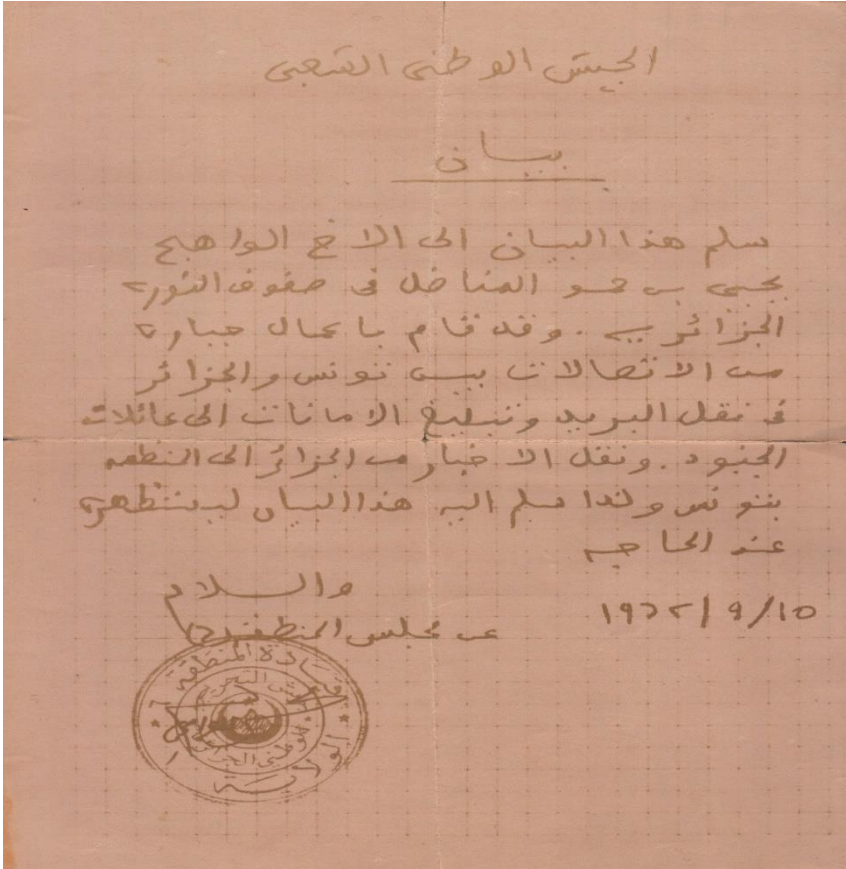 الجيش الوطني الشعبي
بيان
سلم هذا البيان الى الاخ الواهج
يحيى بن حمو المناضل في صفوف الثورة
الجزائرية. وقد قام باعمال جبارة
من الاتصالات بين تونس والجزائر
في نقل البريد وتبليغ الامانات الى عائلات
الجنود. ونقل الاخبار من الجزائر الى المنطقة
بتونس ولذا سلم اليه هذا البيان ليستظهر به
عند الحاجه
والسلام
١٩٦٢/٩/١٥
عن مجلس المنطقة
قيادة المنطقة
الولاية